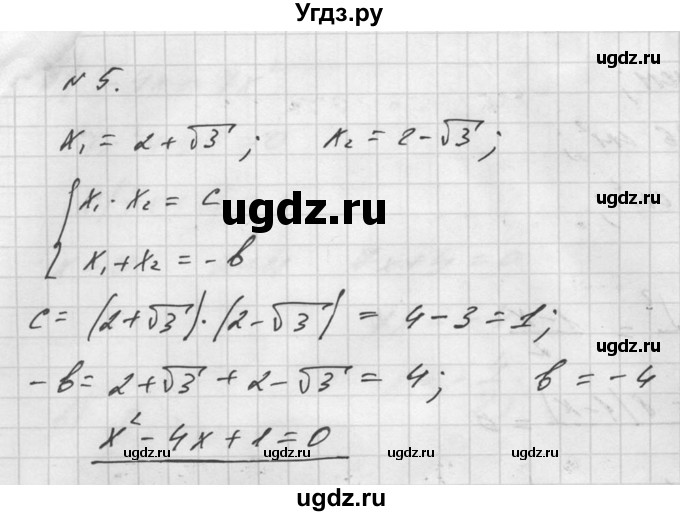 Угдз.ру
ugdz.ru
№ 5.
x₁ = 2 + √3; x₂ = 2 - √3;
ugdz.ru ugdz.ru
{ x₁ · x₂ = c
ugdz.ru
x₁ + x₂ = -b
c = (2+√3)·(2-√3) = 4 - 3 = 1;
ugdz.ru ugdz.ru
-b = 2+√3 + 2-√3 = 4; b = -4
x² - 4x + 1 = 0
ugdz.ru ugdz.ru ugdz.ru
ugdz.ru